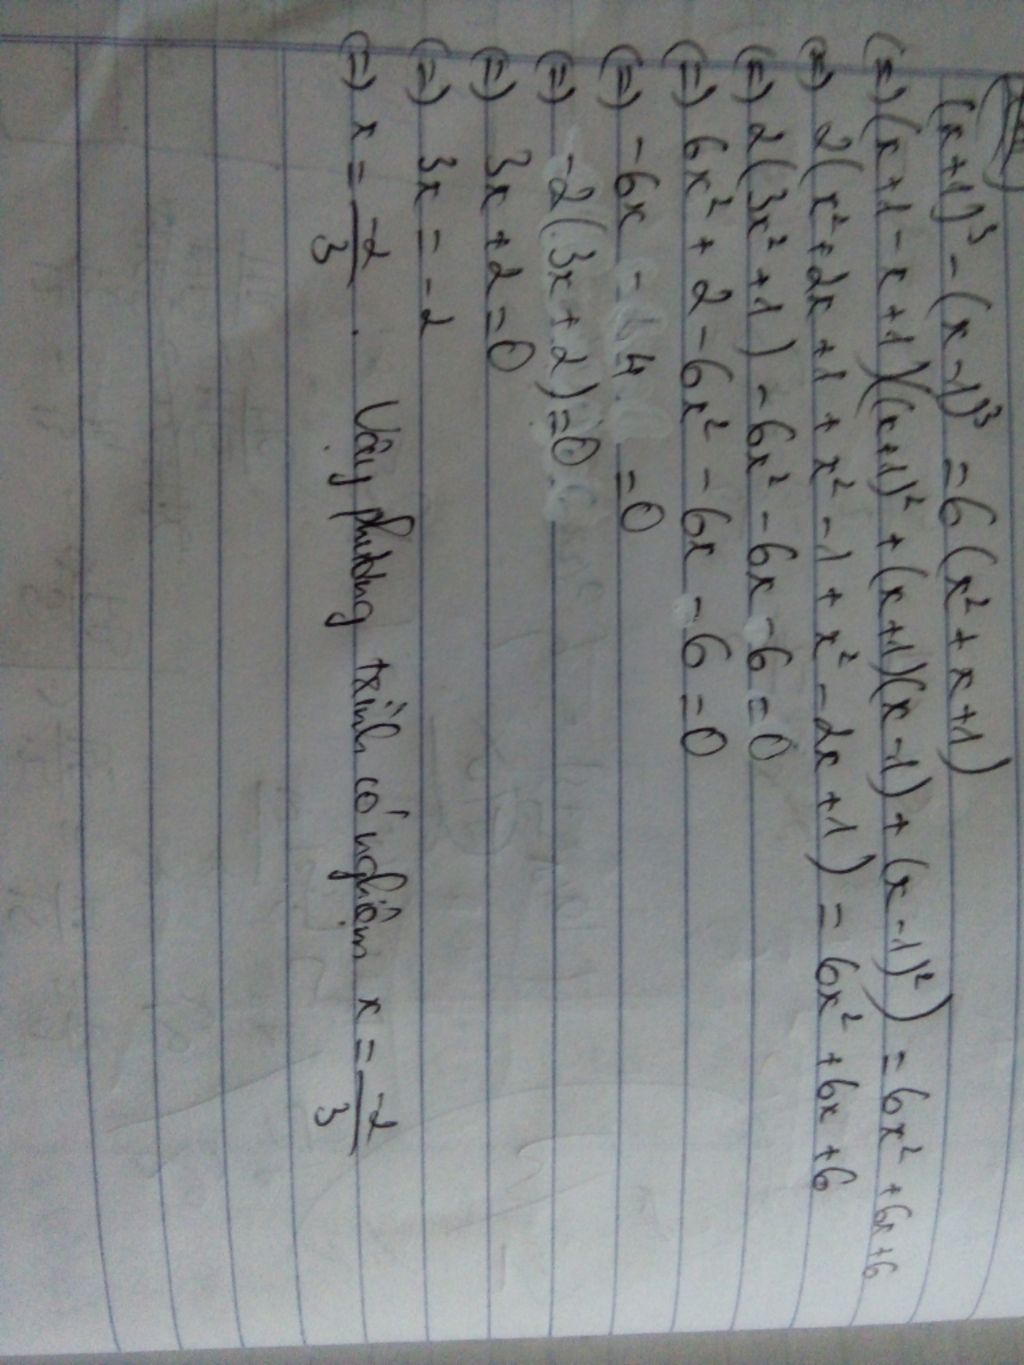 (x+1)³ - (x-1)³ = 6(x²+x+1)
(=) (x+1-x+1)((x+1)²+(x+1)(x-1)+(x-1)²) = 6x²+6x+6
(=) 2(x²+2x+1+x²-1+x²-2x+1) = 6x²+6x+6
(=) 2(3x²+1) - 6x² - 6x - 6 = 0
(=) 6x² + 2 - 6x² - 6x - 6 = 0
(=) -6x - 4 = 0
(=) -2(3x+2) = 0
(=) 3x + 2 = 0
(=) 3x = -2
(=) x = -2/3. Vậy phương trình có nghiệm x = -2/3